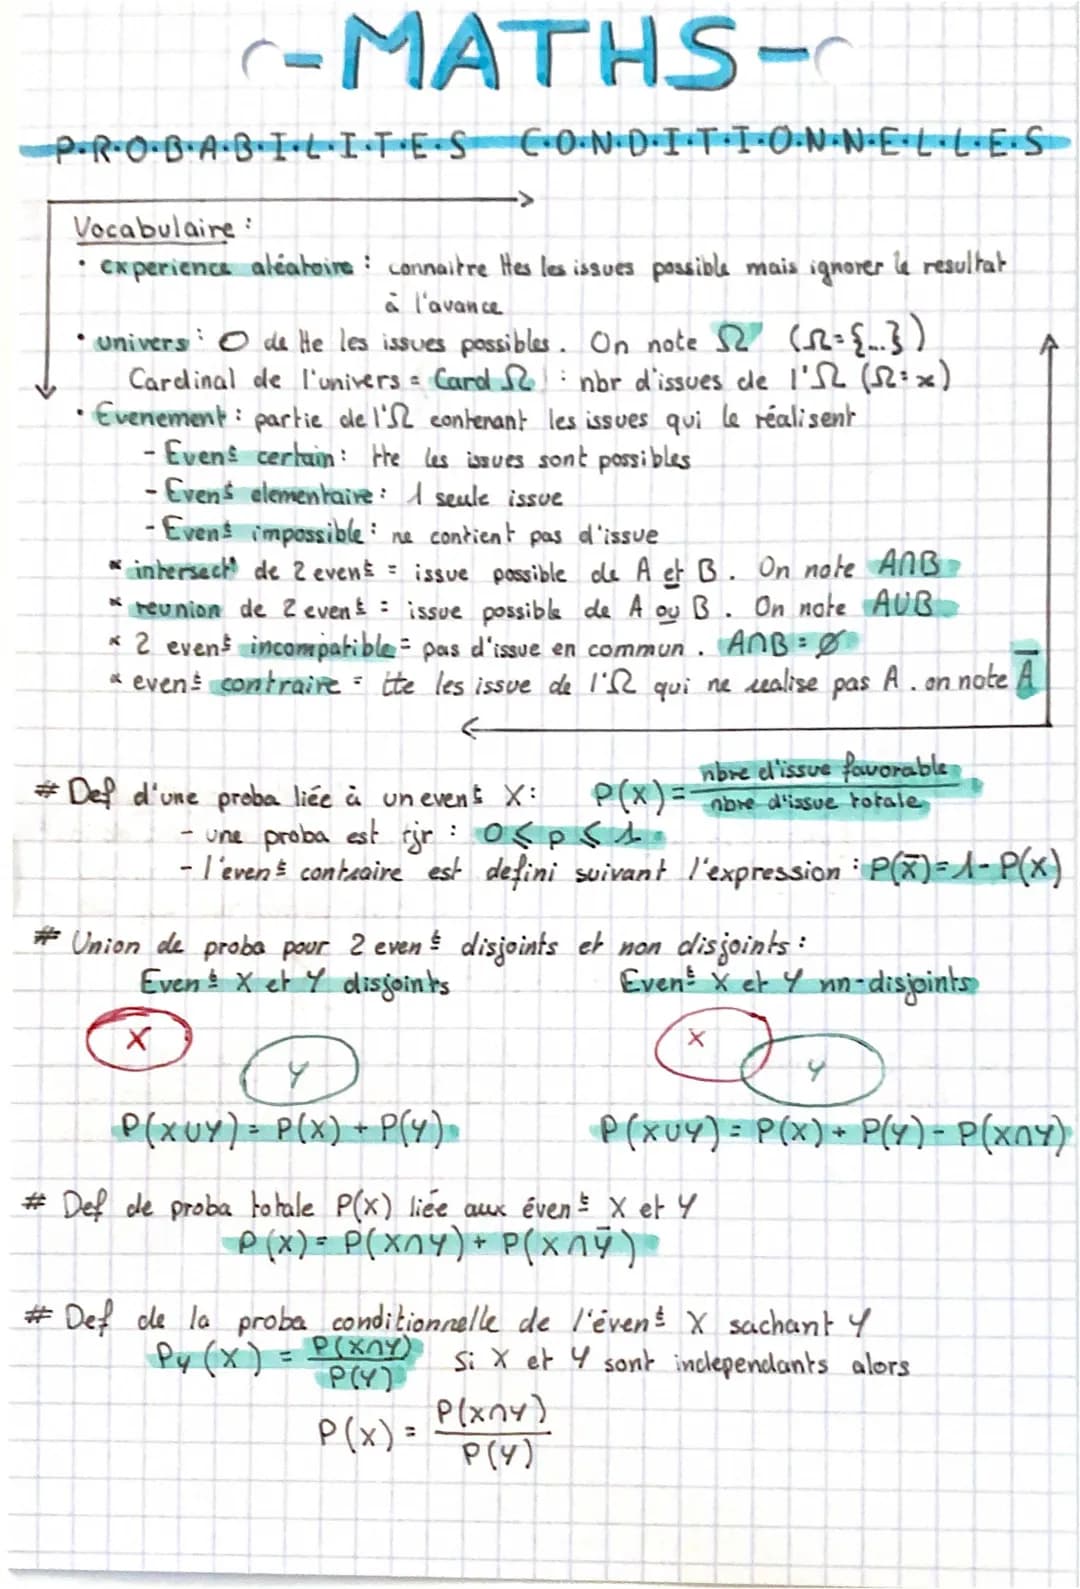 -MATHS-
P.R.O.B.A.B.I.L.I.T.E.S C.O.N.D.I.T.I.O.N.N.E.L.L.E.S
Vocabulaire :
• experience aléatoire : connaitre ttes les issues possible mais ignorer le resultat
à l'avance
• univers : O de tte les issues possibles. On note Ω (Ω={...})
Cardinal de l'univers = Card Ω : nbr d'issues de l'Ω (Ω=x)
• Evenement : partie de l'Ω contenant les issues qui le réalisent
- Evenᵗ certain : tte les issues sont possibles
- Evenᵗ elementaire : 1 seule issue
- Evenᵗ impossible : ne contient pas d'issue
* intersect° de 2 evenᵗ = issue possible de A et B. On note A∩B
* reunion de 2 evenᵗ = issue possible de A ou B. On note AUB
* 2 evenᵗ incompatible = pas d'issue en commun. A∩B = Ø
* evenᵗ contraire = tte les issue de l'Ω qui ne realise pas A. on note A̅
# Def d'une proba liée à un evenᵗ X : P(x) = nbre d'issue favorable / nbre d'issue totale
- une proba est tjr : 0 ⩽ p ⩽ 1
- l'evenᵗ contraire est defini suivant l'expression : P(x̅) = 1 - P(x)
# Union de proba pour 2 evenᵗ disjoints et non disjoints :
Evenᵗ X et Y disjoints Evenᵗ X et Y nn-disjoints
X Y X Y
P(xUy) = P(x) + P(y) P(xUy) = P(x) + P(y) - P(x∩y)
# Def de proba totale P(x) liée aux évenᵗ X et Y
P(x) = P(x∩y) + P(x∩y̅)
# Def de la proba conditionnelle de l'évenᵗ X sachant Y
Py(x) = P(x∩y) / P(y) Si X et Y sont independants alors
P(x) = P(x∩y) / P(y)